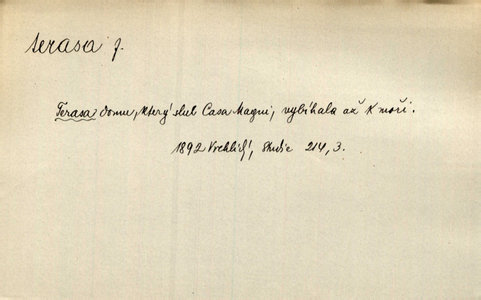 terasa f.
Terasa domu, který slul Casa Magni, vybíhala až k moři.
1892 Vrchlický, Studie 214, 3.